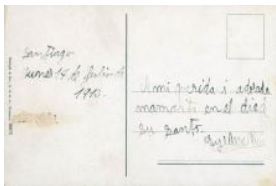 Santiago
lunes 14 de Julio de
1913.-
A mi querida i adorada
mamacita en el dia de
su santo.